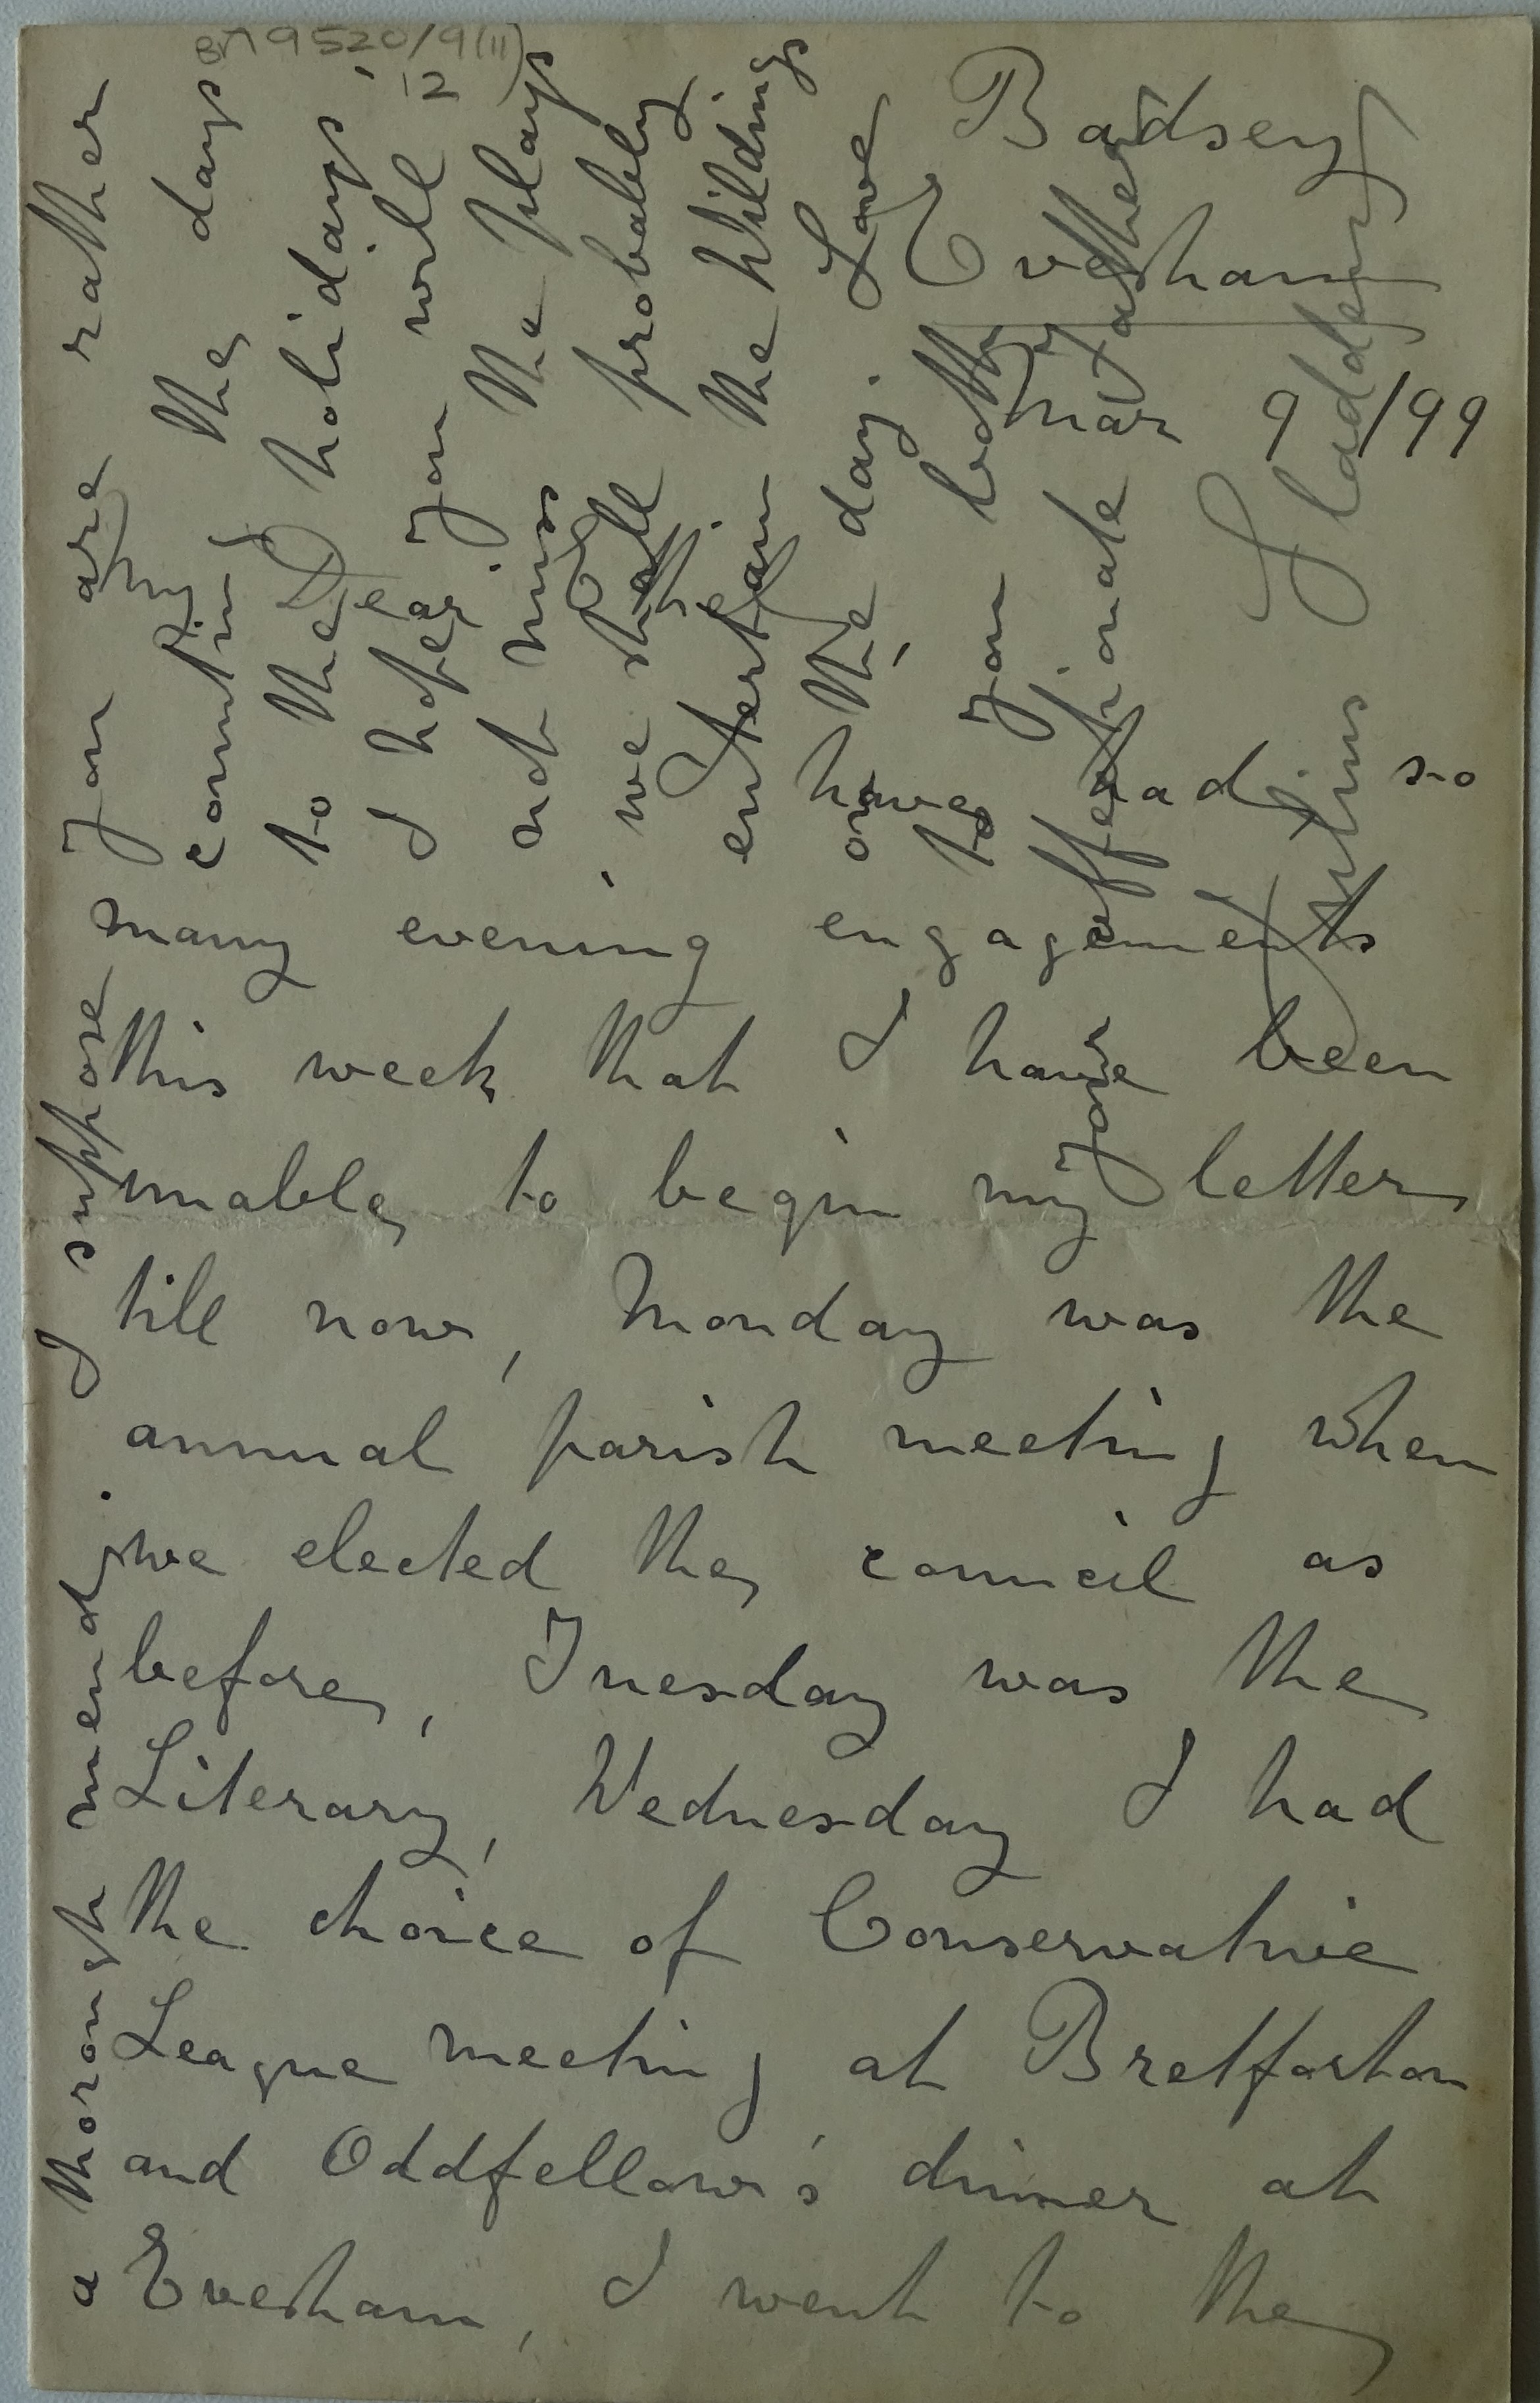 BM 9520/9(II)
12
Badsey
Evesham
Mar 9/99
My Dear Ethel
I have had so
many evening engagements
this week that I have been
unable to begin my letter
till now, Monday was the
annual parish meeting when
we elected the council as
before, Tuesday was the
Literary, Wednesday I had
the choice of Conservative
League meeting at Bretforton
and Oddfellow's dinner at
Evesham, I went to the
a thorough mend. I suppose
you are rather
counting the days
to the holidays,
I hope you will
not miss the plays,
we shall probably
entertain the Wildings
on the day. Love
to you both
Your affectionate Father
Julius Sladden